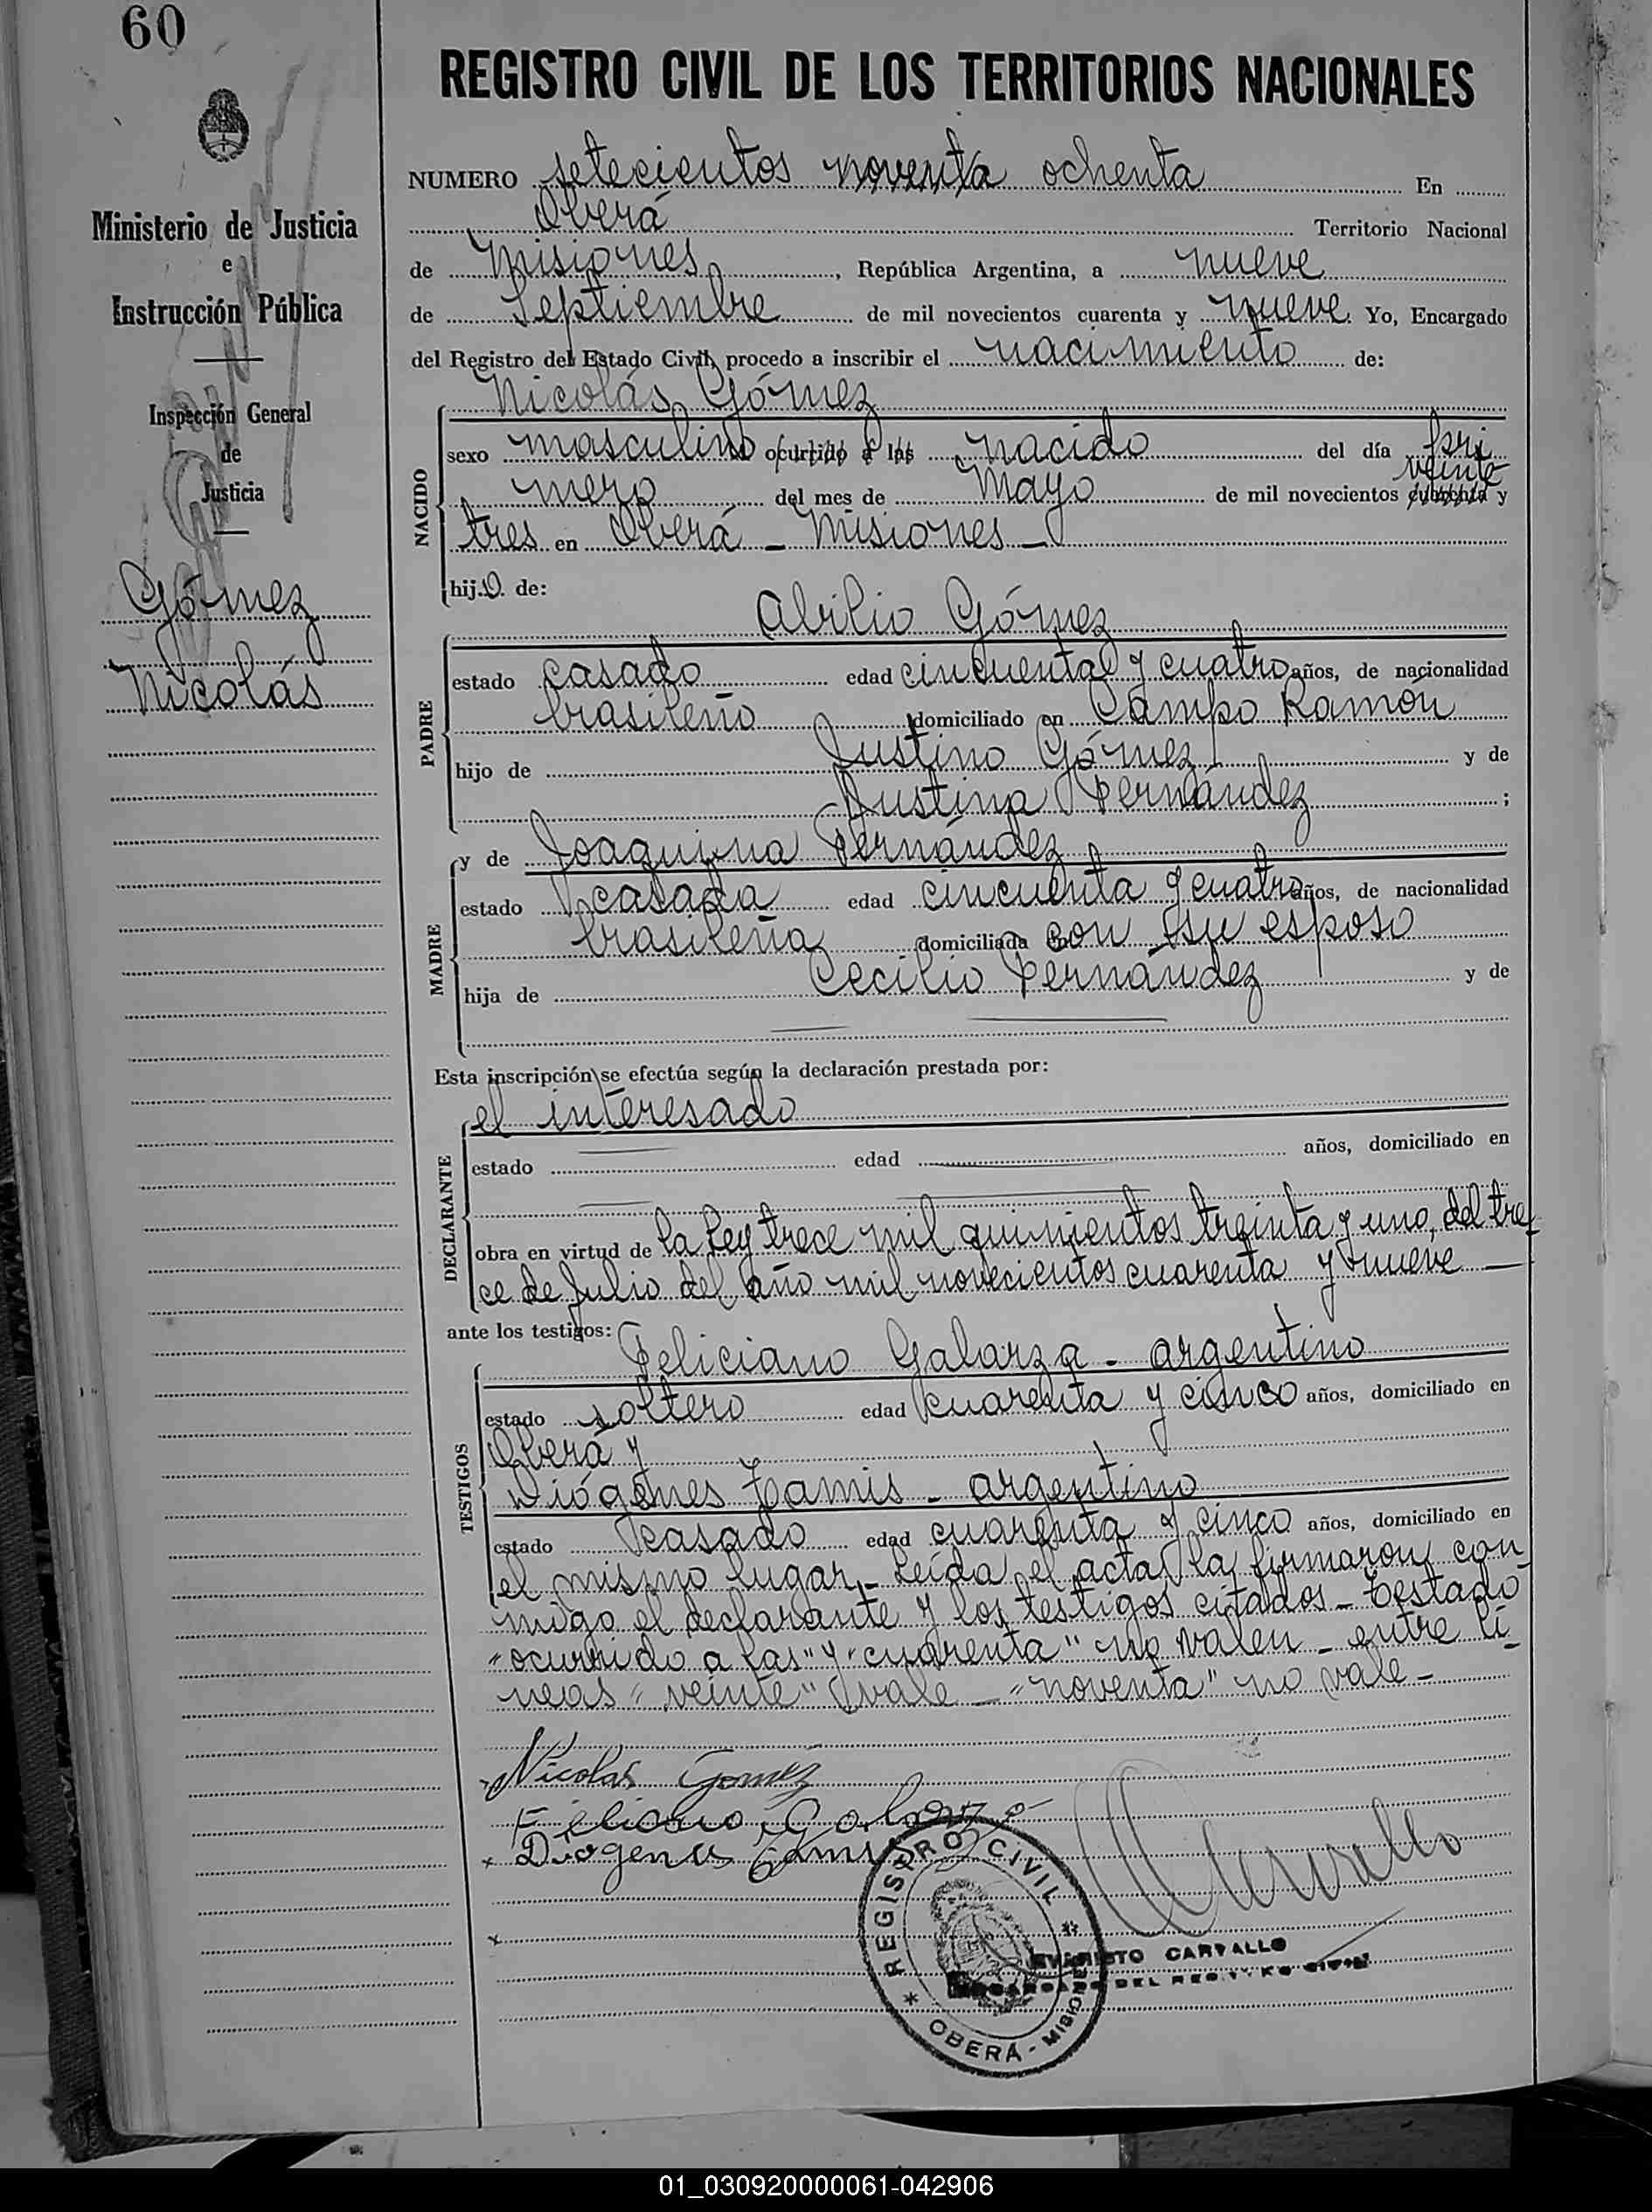 60
REGISTRO CIVIL DE LOS TERRITORIOS NACIONALES
Ministerio de Justicia
e
Instrucción Pública
Inspección General
de
Justicia
Gómez
Nicolás
NUMERO setecientos noventa ochenta En
Oberá Territorio Nacional
de Misiones, República Argentina, a nueve
de Septiembre de mil novecientos cuarenta y nueve. Yo, Encargado
del Registro del Estado Civil, procedo a inscribir el nacimiento de:
Nicolás Gómez
NACIDO
sexo masculino ocurrido a las nacido del día pri
veinte
mero del mes de Mayo de mil novecientos cuarenta y
tres en Oberá - Misiones -
hij.o. de:
Abilio Gómez
PADRE
estado casado edad cincuenta y cuatro años, de nacionalidad
brasileño domiciliado en Campo Ramón
hijo de Justino Gómez y de
Justina Fernández;
MADRE
y de Joaquina Fernández
estado casada edad cincuenta y cuatro años, de nacionalidad
brasileña domiciliada en con su esposo
hija de Cecilio Fernández y de
Esta inscripción se efectúa según la declaración prestada por:
el interesado
DECLARANTE
estado edad años, domiciliado en
obra en virtud de la Ley trece mil quinientos treinta y uno, del tre
ce de Julio del año mil novecientos cuarenta y nueve -
ante los testigos:
Feliciano Galarza - argentino
TESTIGOS
estado soltero edad cuarenta y cinco años, domiciliado en
Oberá y
Diógenes Tamis - argentino
estado casado edad cuarenta y cinco años, domiciliado en
el mismo lugar - Leída el acta la firmaron con
migo el declarante y los testigos citados - Testado
"ocurrido a las" y "cuarenta" no valen - entre lí-
neas "veinte" vale - "noventa" no vale -
Nicolas Gomez
Feliciano Galarza
Diogenes Tamis
REGISTRO CIVIL
OBERÁ - MISIONES
EVARISTO CARVALLO
ENCARGADO DEL REGISTRO CIVIL
01_030920000061-042906